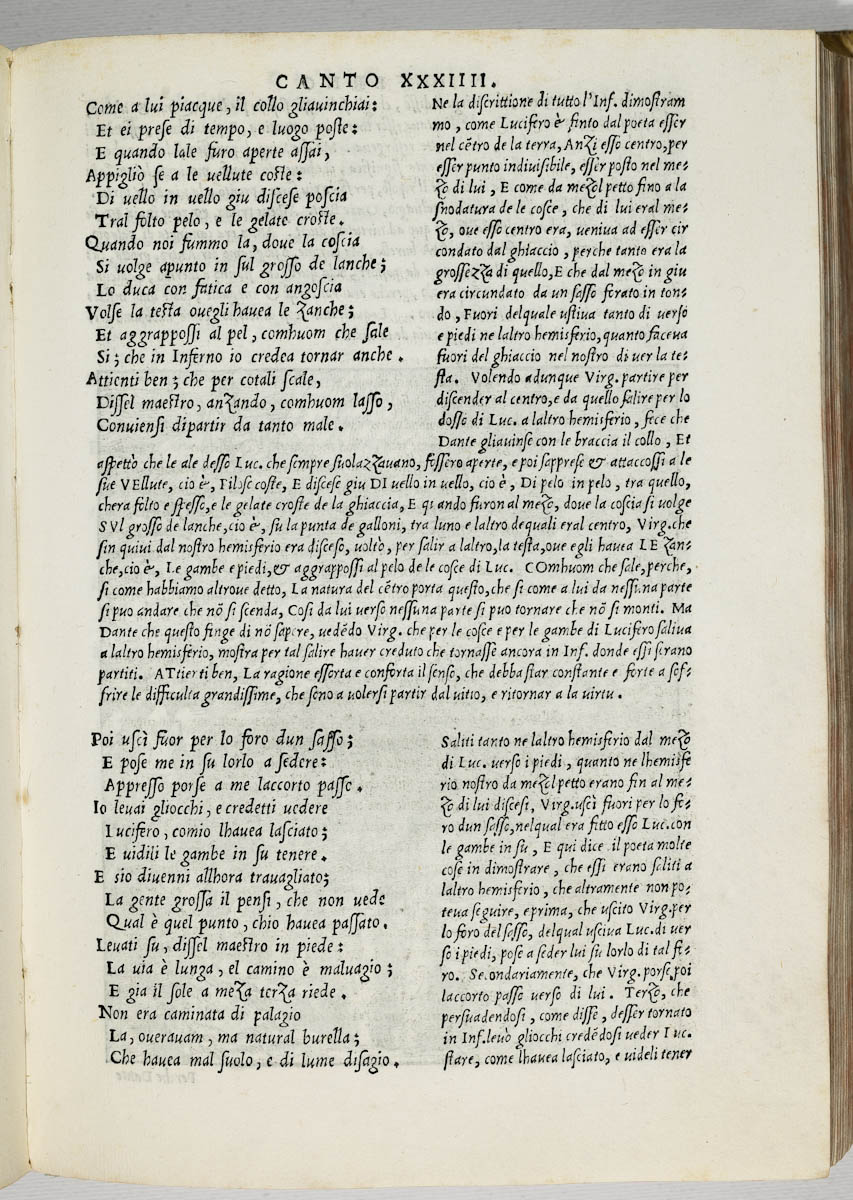 CANTO XXXIIII.
Come a lui piacque, il collo gliauinchiai:
Et ei prese di tempo, e luogo poste:
E quando lale furo aperte assai,
Appigliò se a le uellute coste:
Di uello in uello giu discese poscia
Tral folto pelo, e le gelate croste.
Quando noi fummo la, doue la coscia
Si uolge apunto in sul grosso de lanche;
Lo duca con fatica e con angoscia
Volse la testa ouegli hauea le zanche;
Et aggrappossi al pel, comhuom che sale
Si; che in Inferno io credea tornar anche.
Attienti ben; che per cotali scale,
Dissel maestro, anzando, comhuom lasso,
Conuiensi dipartir da tanto male.
Ne la discrittione di tutto l'Inf. dimostram
mo, come Lucifero è finto dal poeta esser
nel cẽtro de la terra, Anzi esso centro, per
esser punto indiuisibile, esser posto nel me-
zo di lui, E come da mezol petto fino a la
snodatura de le cosce, che di lui eral me-
zo, oue esso centro era, ueniua ad esser cir
condato dal ghiaccio, perche tanto era la
grossezza di quello, E che dal mezo in giu
era circundato da un sasso forato in ton-
do, Fuori delquale ustiua tanto di uerso
e piedi ne laltro hemisferio, quanto faceua
fuori del ghiaccio nel nostro di uer la te-
sta. Volendo adunque Virg. partire per
discender al centro, e da quello salire per lo
dosso di Luc. a laltro hemisferio, fece che
Dante gliauinse con le braccia il collo, Et
aspettò che le ale desso Luc. che sempre suolazzauano, fissero aperte, e poi sapprese & attaccossi a le
sue VEllute, cio è, Filose coste, E discese giu DI uello in uello, cio è, Di pelo in pelo, tra quello,
chera folto e spesso, e le gelate croste de la ghiaccia, E quando furon al mezo, doue la coscia si uolge
SVl grosso de lanche, cio è, su la punta de galloni, tra luno e laltro dequali eral centro, Virg. che
fin quiui dal nostro hemisferio era disceso, uoltò, per salir a laltro, la testa, oue egli hauea LE zan-
che, cio è, Le gambe e piedi, & aggrappossi al pelo de le cosce di Luc. COmhuom che sale, perche,
si come habbiamo altroue detto, La natura del cẽtro porta questo, che si come a lui da nessuna parte
si puo andare che nõ si scenda, Cosi da lui uerso nessuna parte si puo tornare che nõ si monti. Ma
Dante che questo finge di nõ sapere, uedẽdo Virg. che per le cosce e per le gambe di Lucifero saliua
a laltro hemisferio, mostra per tal salire hauer creduto che tornasse ancora in Inf. donde essi serano
partiti. ATtienti ben, La ragione essorta e conforta il senso, che debba star constante e forte a sof-
frire le difficulta grandissime, che sono a uolersi partir dal uitio, e ritornar a la uirtu.
Poi uscì fuor per lo foro dun sasso;
E pose me in su lorlo a sedere:
Appresso porse a me laccorto passo.
Io leuai gliocchi, e credetti uedere
Lucifero, comio lhauea lasciato;
E uidili le gambe in su tenere.
E sio diuenni allhora trauagliato;
La gente grossa il pensi, che non uede
Qual è quel punto, chio hauea passato.
Leuati su, dissel maestro in piede:
La uia è lunga, el camino è maluagio;
E gia il sole a meza terza riede.
Non era caminata di palagio
La, ouerauam, ma natural burella;
Che hauea mal suolo, e di lume disagio.
Saliti tanto ne laltro hemisferio dal mezo
di Luc. uerso i piedi, quanto ne lhemisfe
rio nostro da mezol petto erano fin al me-
zo di lui discesi, Virg. uscì fuori per lo fo-
ro dun sasso, nelqual era fitto esso Luc. con
le gambe in su, E qui dice il poeta molte
cose in dimostrare, che essi erano saliti a
laltro hemisferio, che altramente non po-
teua seguire, e prima, che uscito Virg. per
lo foro del sasso, delqual usciua Luc. di uer
so i piedi, pose a seder lui su lorlo di tal fo-
ro. Secondariamente, che Virg. porse poi
laccorto passo uerso di lui. Terzo, che
persuadendosi, come disse, desser tornato
in Inf. leuò gliocchi credẽdosi ueder Luc.
stare, come lhauea lasciato, e uideli tener